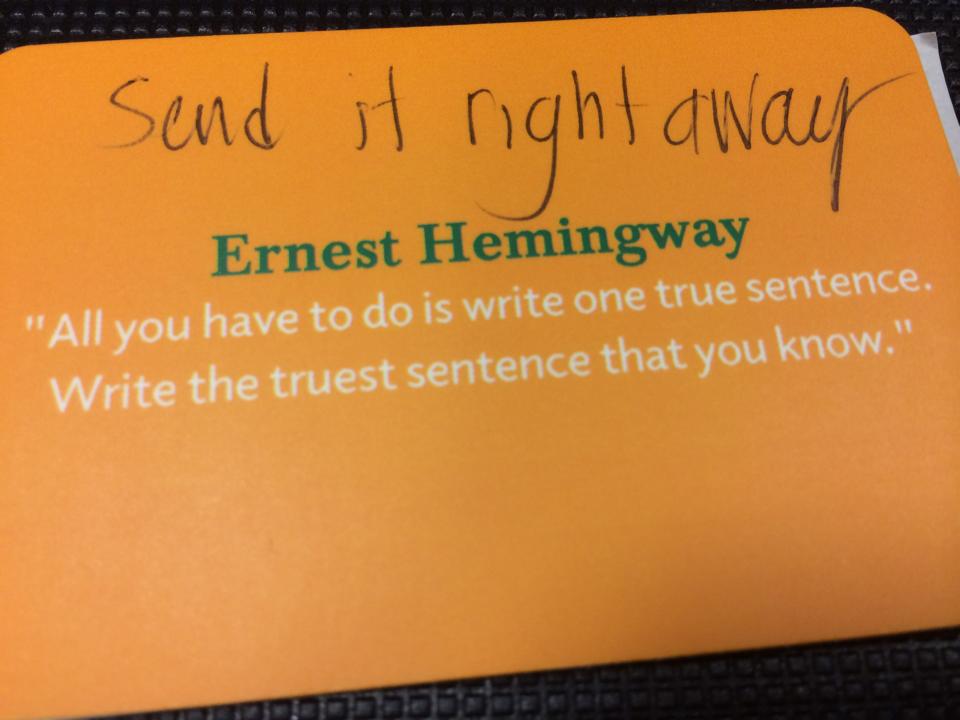 Send it right away
Ernest Hemingway
"All you have to do is write one true sentence.
Write the truest sentence that you know."